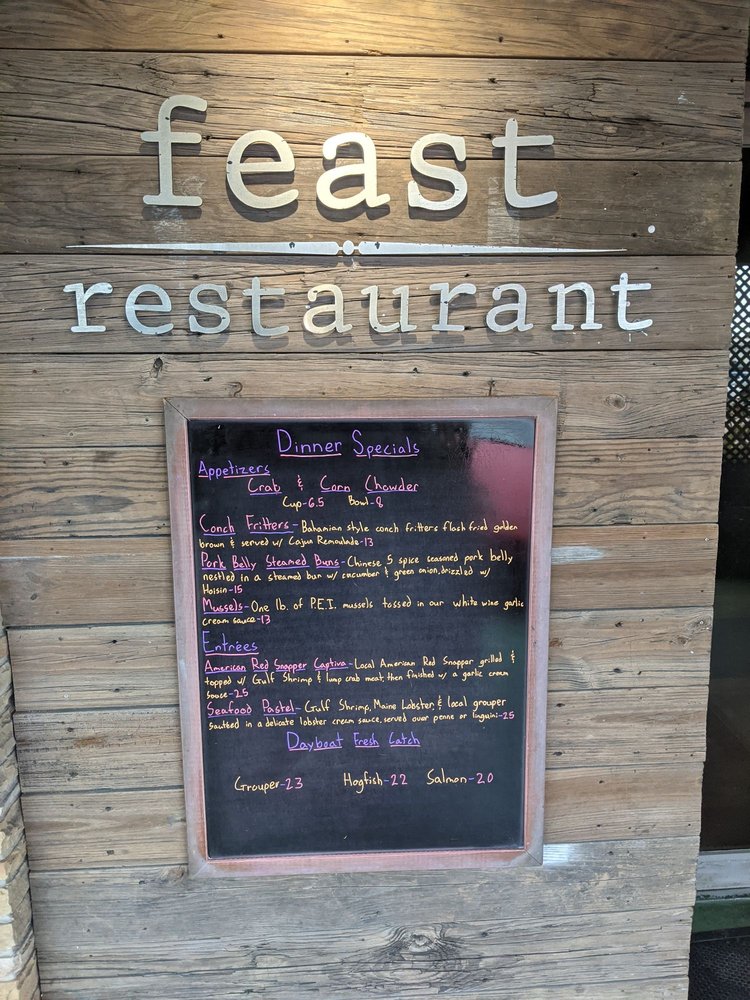 feast
restaurant
Dinner Specials
Appetizers
Crab & Corn Chowder
Cup-6.5 Bowl-8
Conch Fritters-Bahamian style conch fritters flash fried golden
brown & served w/ Cajun Remoulade-13
Pork Belly Steamed Buns-Chinese 5 spice seasoned pork belly
nestled in a steamed bun w/ cucumber & green onion, drizzled w/
Hoisin-15
Mussels-One lb. of P.E.I. mussels tossed in our white wine garlic
cream sauce-13
Entrées
American Red Snapper Captiva-Local American Red Snapper grilled &
topped w/ Gulf Shrimp & lump crab meat, then finished w/ a garlic cream
sauce-25
Seafood Pasta-Gulf Shrimp, Maine Lobster, & local grouper
sautéed in a delicate lobster cream sauce, served over penne or linguini-25
Dayboat Fresh Catch
Grouper-23 Hogfish-22 Salmon-20